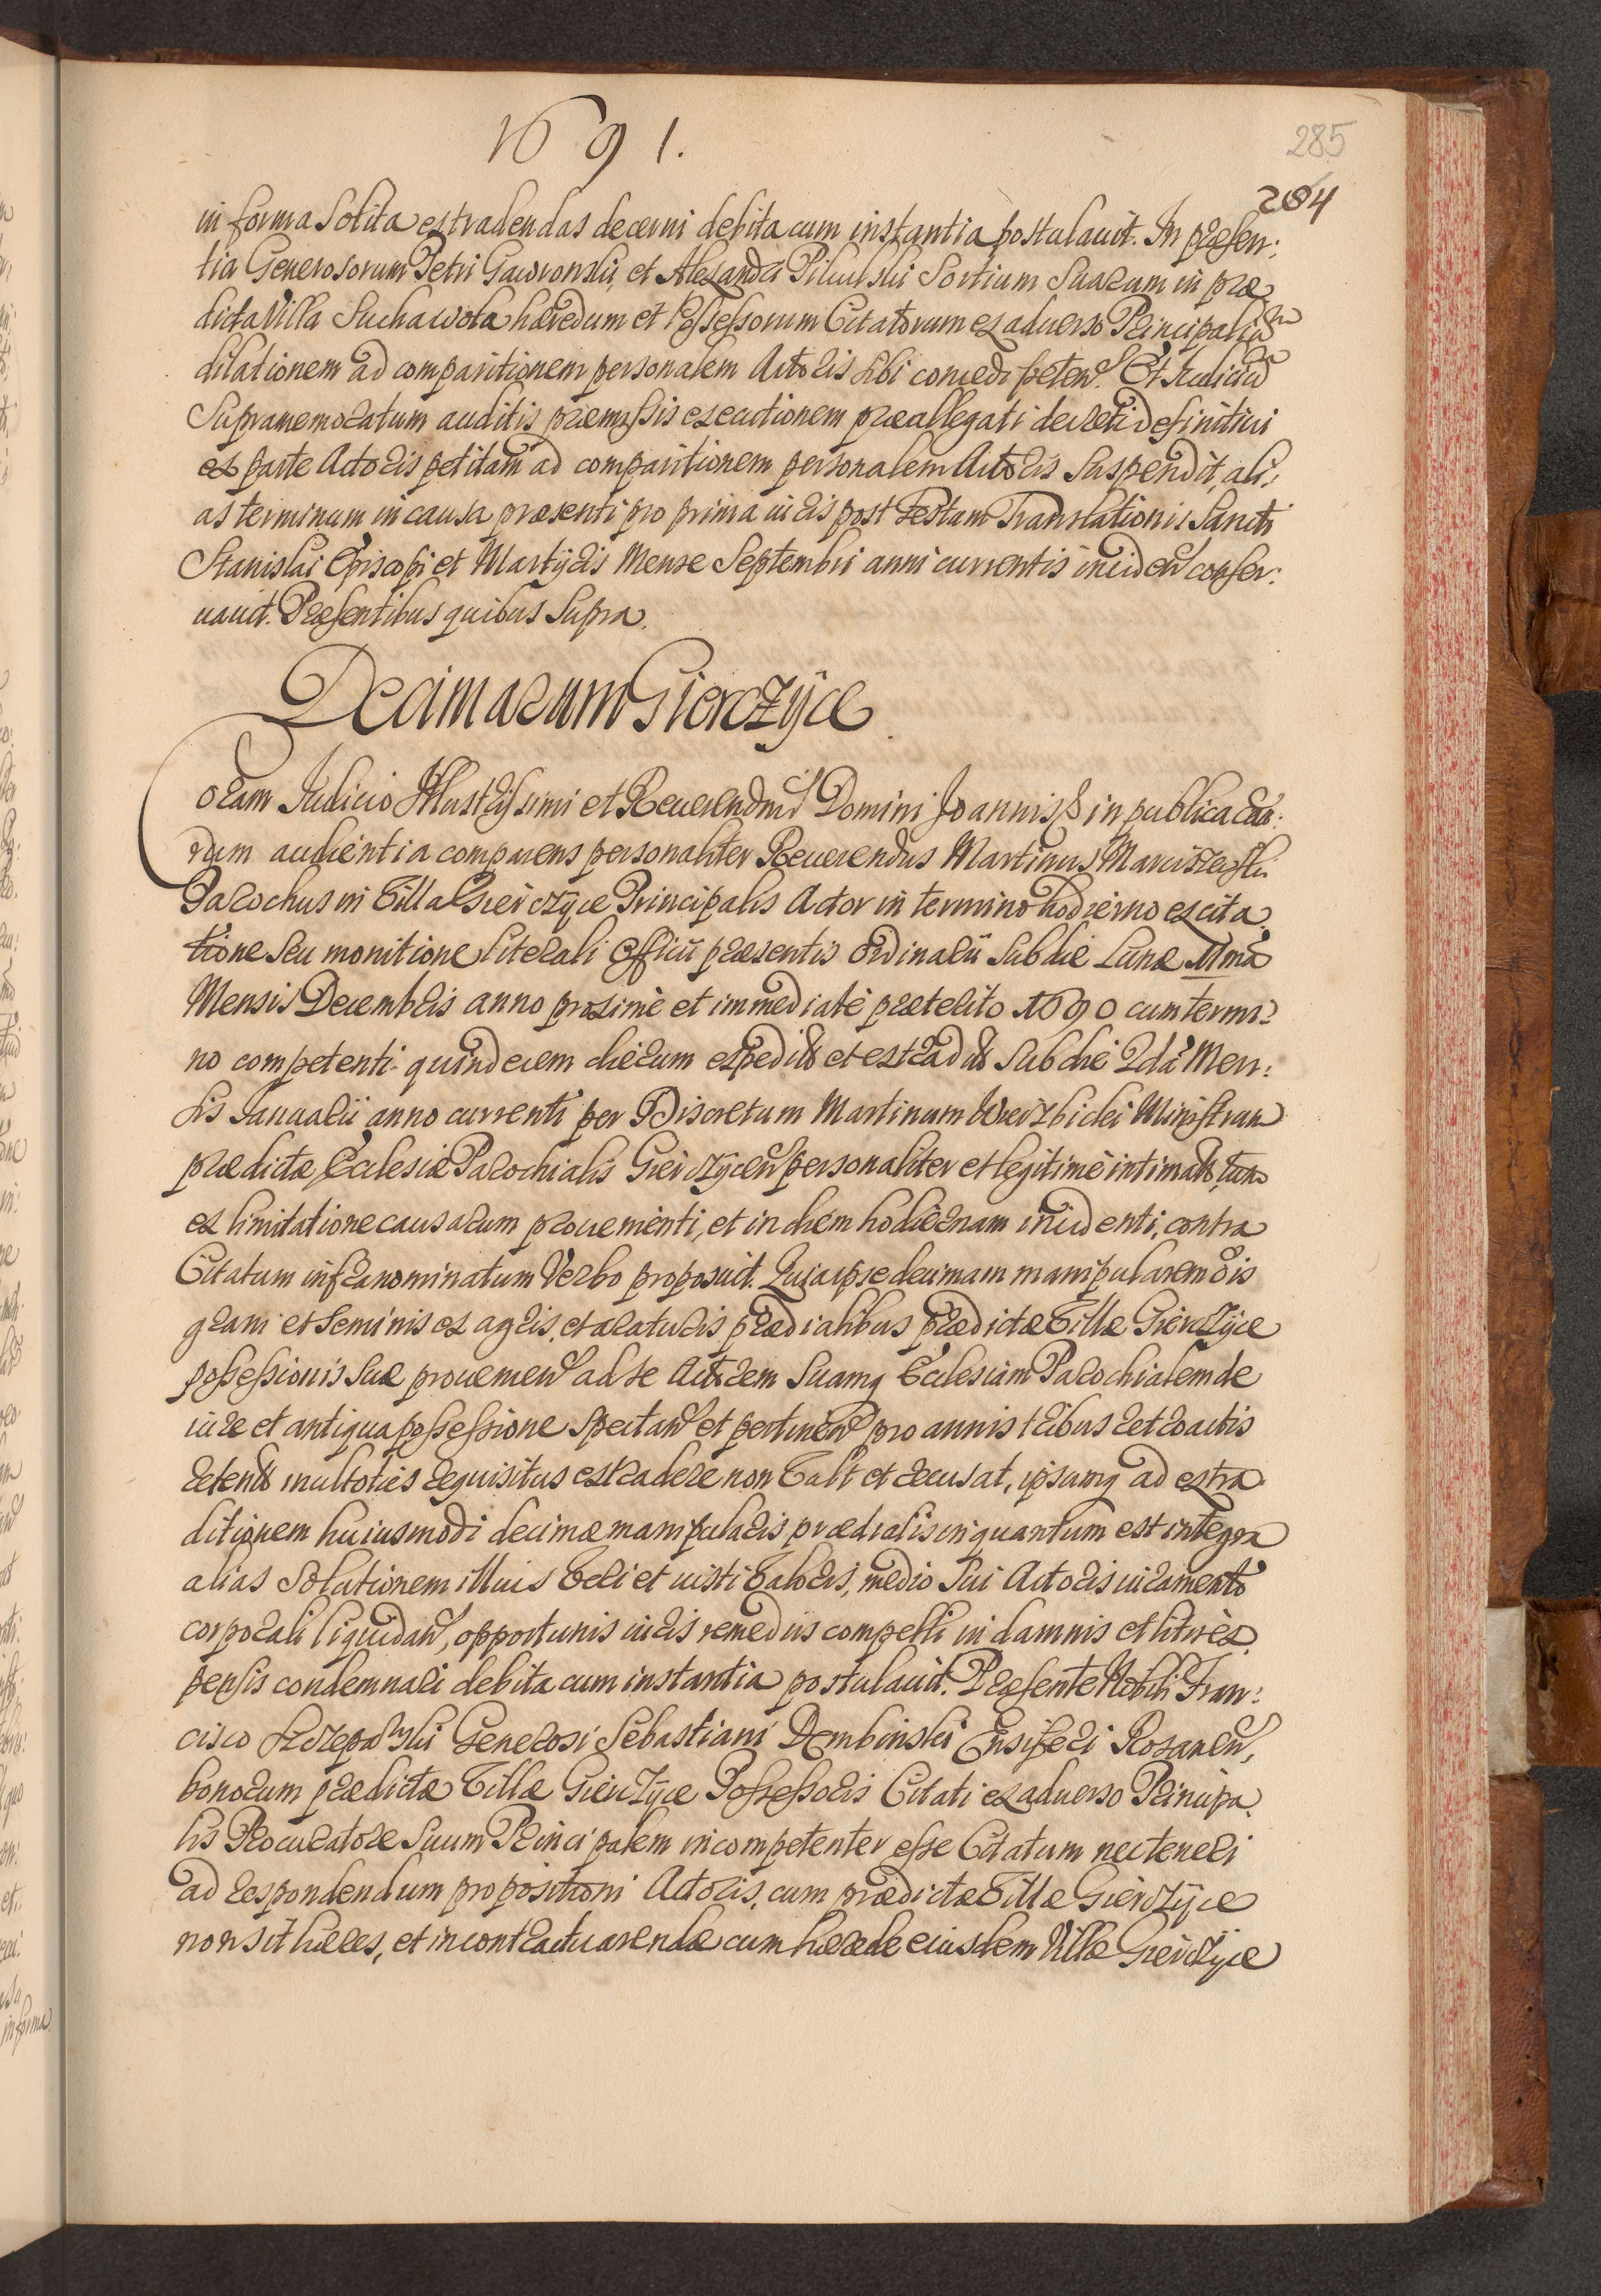 1691.
285
284
in forma solita extradendas decerni debita cum instantia postulavit. In præsen:
tia Generosorum Petri Gawronskij, et Alexandri Pikulski Sortium Suarum in præ
dicta Villa Suchawola hæredum et Possessorum Citatorum ex adverso Principaliũ
dilationem ad comparitionem personalem Actoris sibi concedi peteñ. Et Iudiciũ
Supramemoratum auditis præmissis executionem præallegati decreti definitivi
ex parte Actoris petitam ad comparitionem personalem Actoris Suspendit, ali:
as terminum in causa præsenti pro prima iuris post Festum Translationis Sancti
Stanislai Episcopi et Martyris Mense Septembri anni currentis incideñ conser:
vavit. Præsentibus quibus Supra.
Decimarum Gierczyce
Coram Iudicio Illustrissimi et Reverendmi Domini Joannis ß in publica cau:
rum audientia comparens personaliter Reverendus Martinus
Parochus in Villa Gierczyce Principalis Actor in termino hodierno ex cita
tione seu monitione literali Officii præsentis Ordinarii Sub die Lunæ 11ma
Mensis Decembris anno proxime et immediate præterito 1690 cum termi:
no competenti quindecem dierum expedit et extradit Sub die 2da Men:
sis Januarii anno currenti per Discretum Martinum Wierzbicki Ministrum
prædictæ Ecclesiæ Parochialis Gierczyceñ personaliter et legitime intimat tum
ex limitatione causarum provenienti, et in diem hodiernam incidenti, contra
Citatum infranominatum Verbo proposuit. Quia ipse decimam manipularem ois
grani et seminis ex agris et araturis prædialibus prædictæ Villæ Gierczyce
possessionis suæ provenieñ ad se Actorem Suamq Ecclesiam Parochialem de
iure et antiqua possessione spectañ et pertineñ pro annis tribus retroactis
retent multoties requisitus extradere non Vult et recusat, ipsumq ad extra
ditionem huiusmodi decimæ manipularis prædialis in quantum est integra
alias Solutionem illius Veri et iusti Valoris, medio sui Actoris iuramento
corporali liquidañ, opportunis iuris remediis compelli in damnis et litis ex
pensis condemnari debita cum instantia postulavit. Præsente Nobili Fran:
cisco Generosi Sebastiani Dembinski Ensiferi Rosaneñ,
bonorum prædictæ Villæ Gierczyce Possessoris Citati ex adverso Principa
lis Procuratore Suum Principalem incompetenter esse Citatum nec teneri
ad respondendum propositioni Actoris, cum prædictæ Villæ Gierczyce
non sit hæres, et in contractu arendæ cum hærede eiusdem Villæ Gierczyce